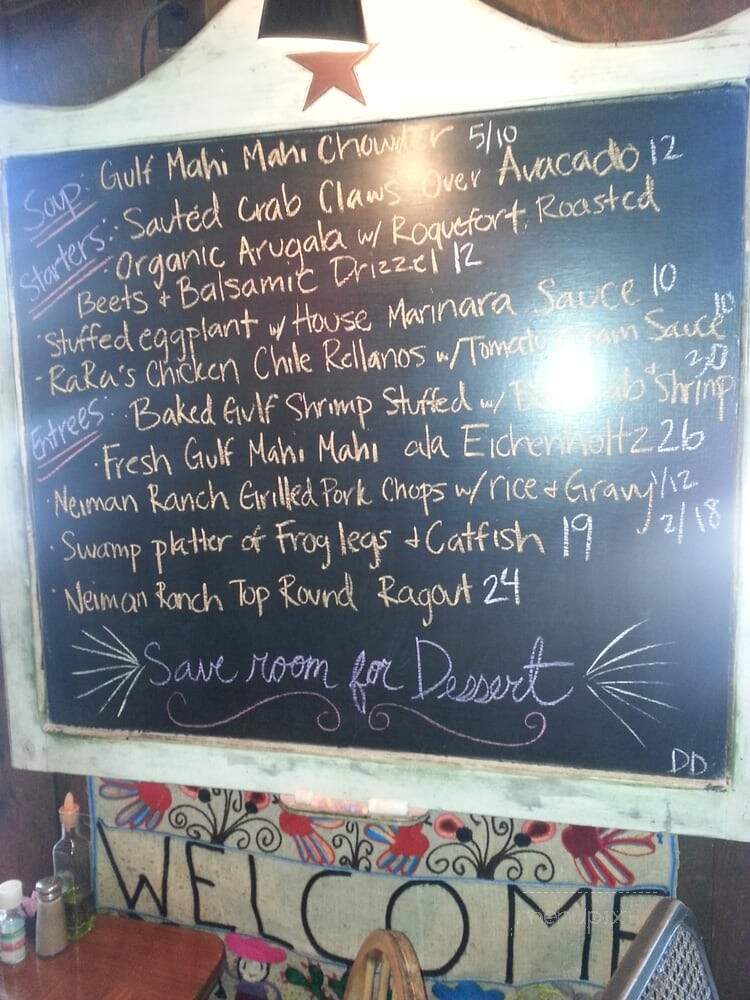 Soup: Gulf Mahi Mahi Chowder 5/10
Starters: Sautéd Crab Claws Over Avacado 12
· Organic Arugala w/ Roquefort, Roasted
Beets + Balsamic Drizzel 12
· Stuffed eggplant w/ House Marinara Sauce 10
· RaRa's Chicken Chile Rellanos w/ Tomato Cream Sauce 10
Entrees: · Baked Gulf Shrimp Stuffed w/ Shrimp 20
· Fresh Gulf Mahi Mahi ala Eichenholtz 26
· Neiman Ranch Grilled Pork Chops w/ rice + Gravy 1/12
2/18
· Swamp platter of Frog legs + Catfish 19
· Neiman Ranch Top Round Ragout 24
Save room for Dessert
DD
WELCOME
menupix